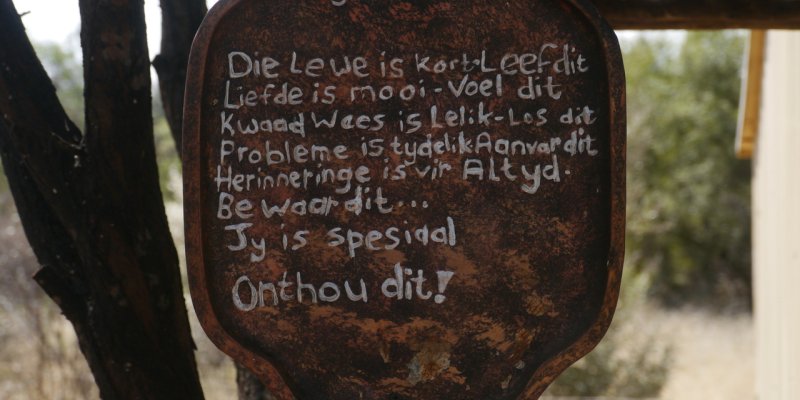 Die Lewe is kort-Leef dit
Liefde is mooi-Voel dit
Kwaad Wees is Lelik-Los dit
Probleme is tydelik-Aanvar dit
Herinneringe is vir Altyd.
Bewaar dit...
Jy is spesiaal
Onthou dit!